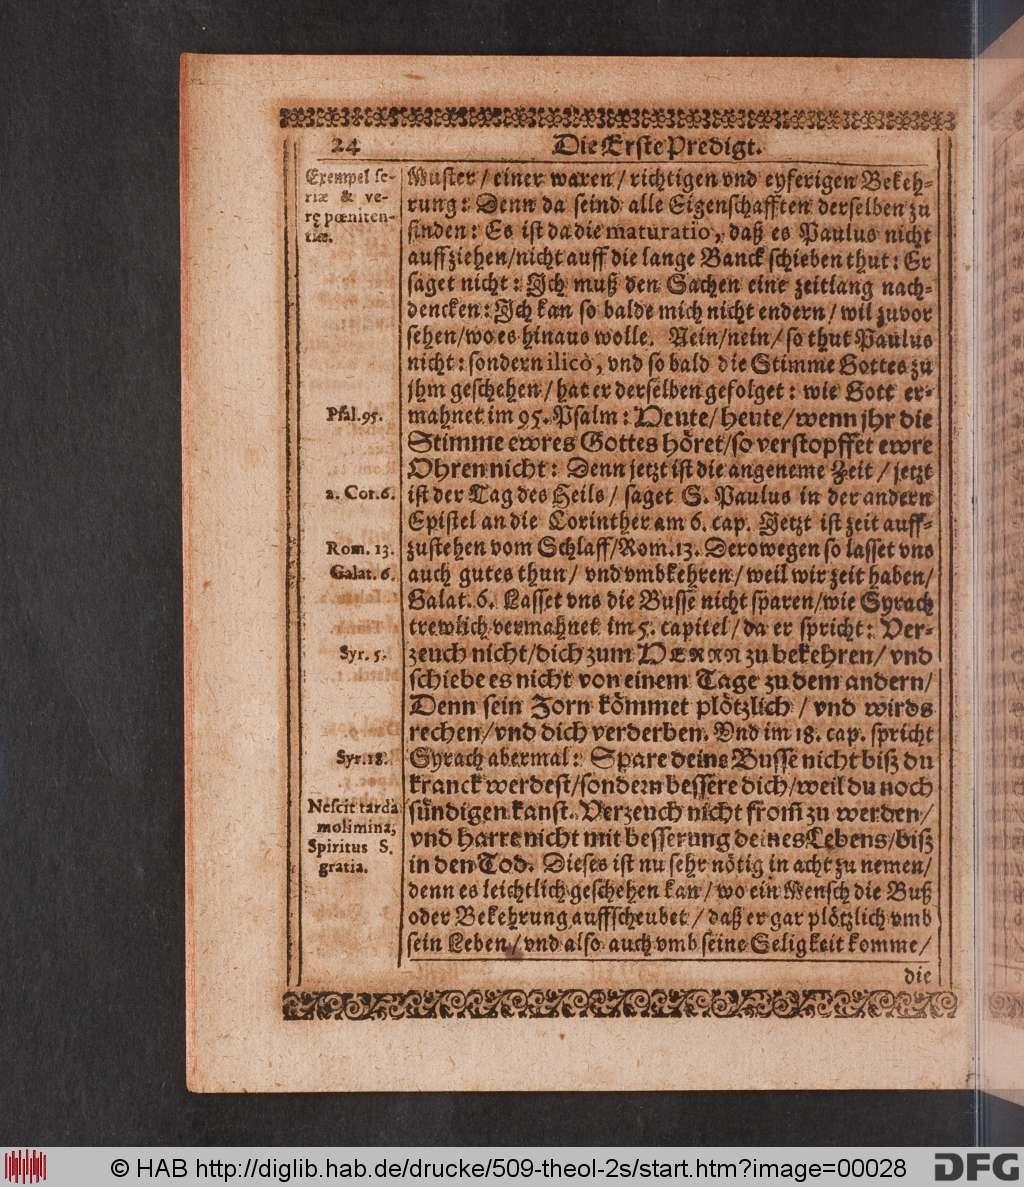 24
Die Erste Predigt.
Exempel se-
riæ & ve-
rę pœniten-
tiæ.
Muster / einer waren / richtigen vnd eyferigen Bekeh-
rung: Denn da seind alle Eigenschafften derselben zu
finden: Es ist da die maturatio, daß es Paulus nicht
auffziehen/nicht auff die lange Banck schieben thut: Er
saget nicht: Ich muß den Sachen eine zeitlang nach-
dencken: Ich kan so balde mich nicht endern/ wil zuvor
sehen/wo es hinaus wolle. Nein/nein/ so thut Paulus
nicht: sondern ilicò, vnd so bald die Stimme Gottes zu
jhm geschehen / hat er derselben gefolget: wie Gott er-
Psal.95.
mahnet im 95. Psalm: Heute/ heute/ wenn jhr die
Stimme ewres Gottes höret/so verstopffet ewre
Ohren nicht: Denn jetzt ist die angeneme Zeit / jetzt
2. Cor.6.
ist der Tag des Heils / saget S. Paulus in der andern
Epistel an die Corinther am 6. cap. Jetzt ist zeit auff-
Rom. 13.
zustehen vom Schlaff/Rom.13. Derowegen so lasset vns
Galat. 6.
auch gutes thun/ vnd vmbkehren/ weil wir zeit haben/
Galat. 6. Lasset vns die Busse nicht sparen/wie Syrach
trewlich vermahnet im 5. capitel/ da er spricht: Ver-
Syr. 5.
zeuch nicht/dich zum HERRN zu bekehren/ vnd
schiebe es nicht von einem Tage zu dem andern/
Denn sein Zorn kömmet plötzlich / vnd wirds
rechen/vnd dich verderben. Vnd im 18. cap. spricht
Syr.18.
Syrach abermal: Spare deine Busse nicht biß du
kranck werdest/sondern bessere dich/weil du noch
Nescit tarda
molimina,
Spiritus S.
gratia.
sündigen kanst. Verzeuch nicht from̃ zu werden/
vnd harre nicht mit besserung deines Lebens/biß
in den Tod. Dieses ist nu sehr nötig in acht zu nemen/
denn es leichtlich geschehen kan/ wo ein Mensch die Buß
oder Bekehrung auffscheubet / daß er gar plötzlich vmb
sein Leben/ vnd also auch vmb seine Seligkeit komme/
die
© HAB http://diglib.hab.de/drucke/509-theol-2s/start.htm?image=00028
DFG